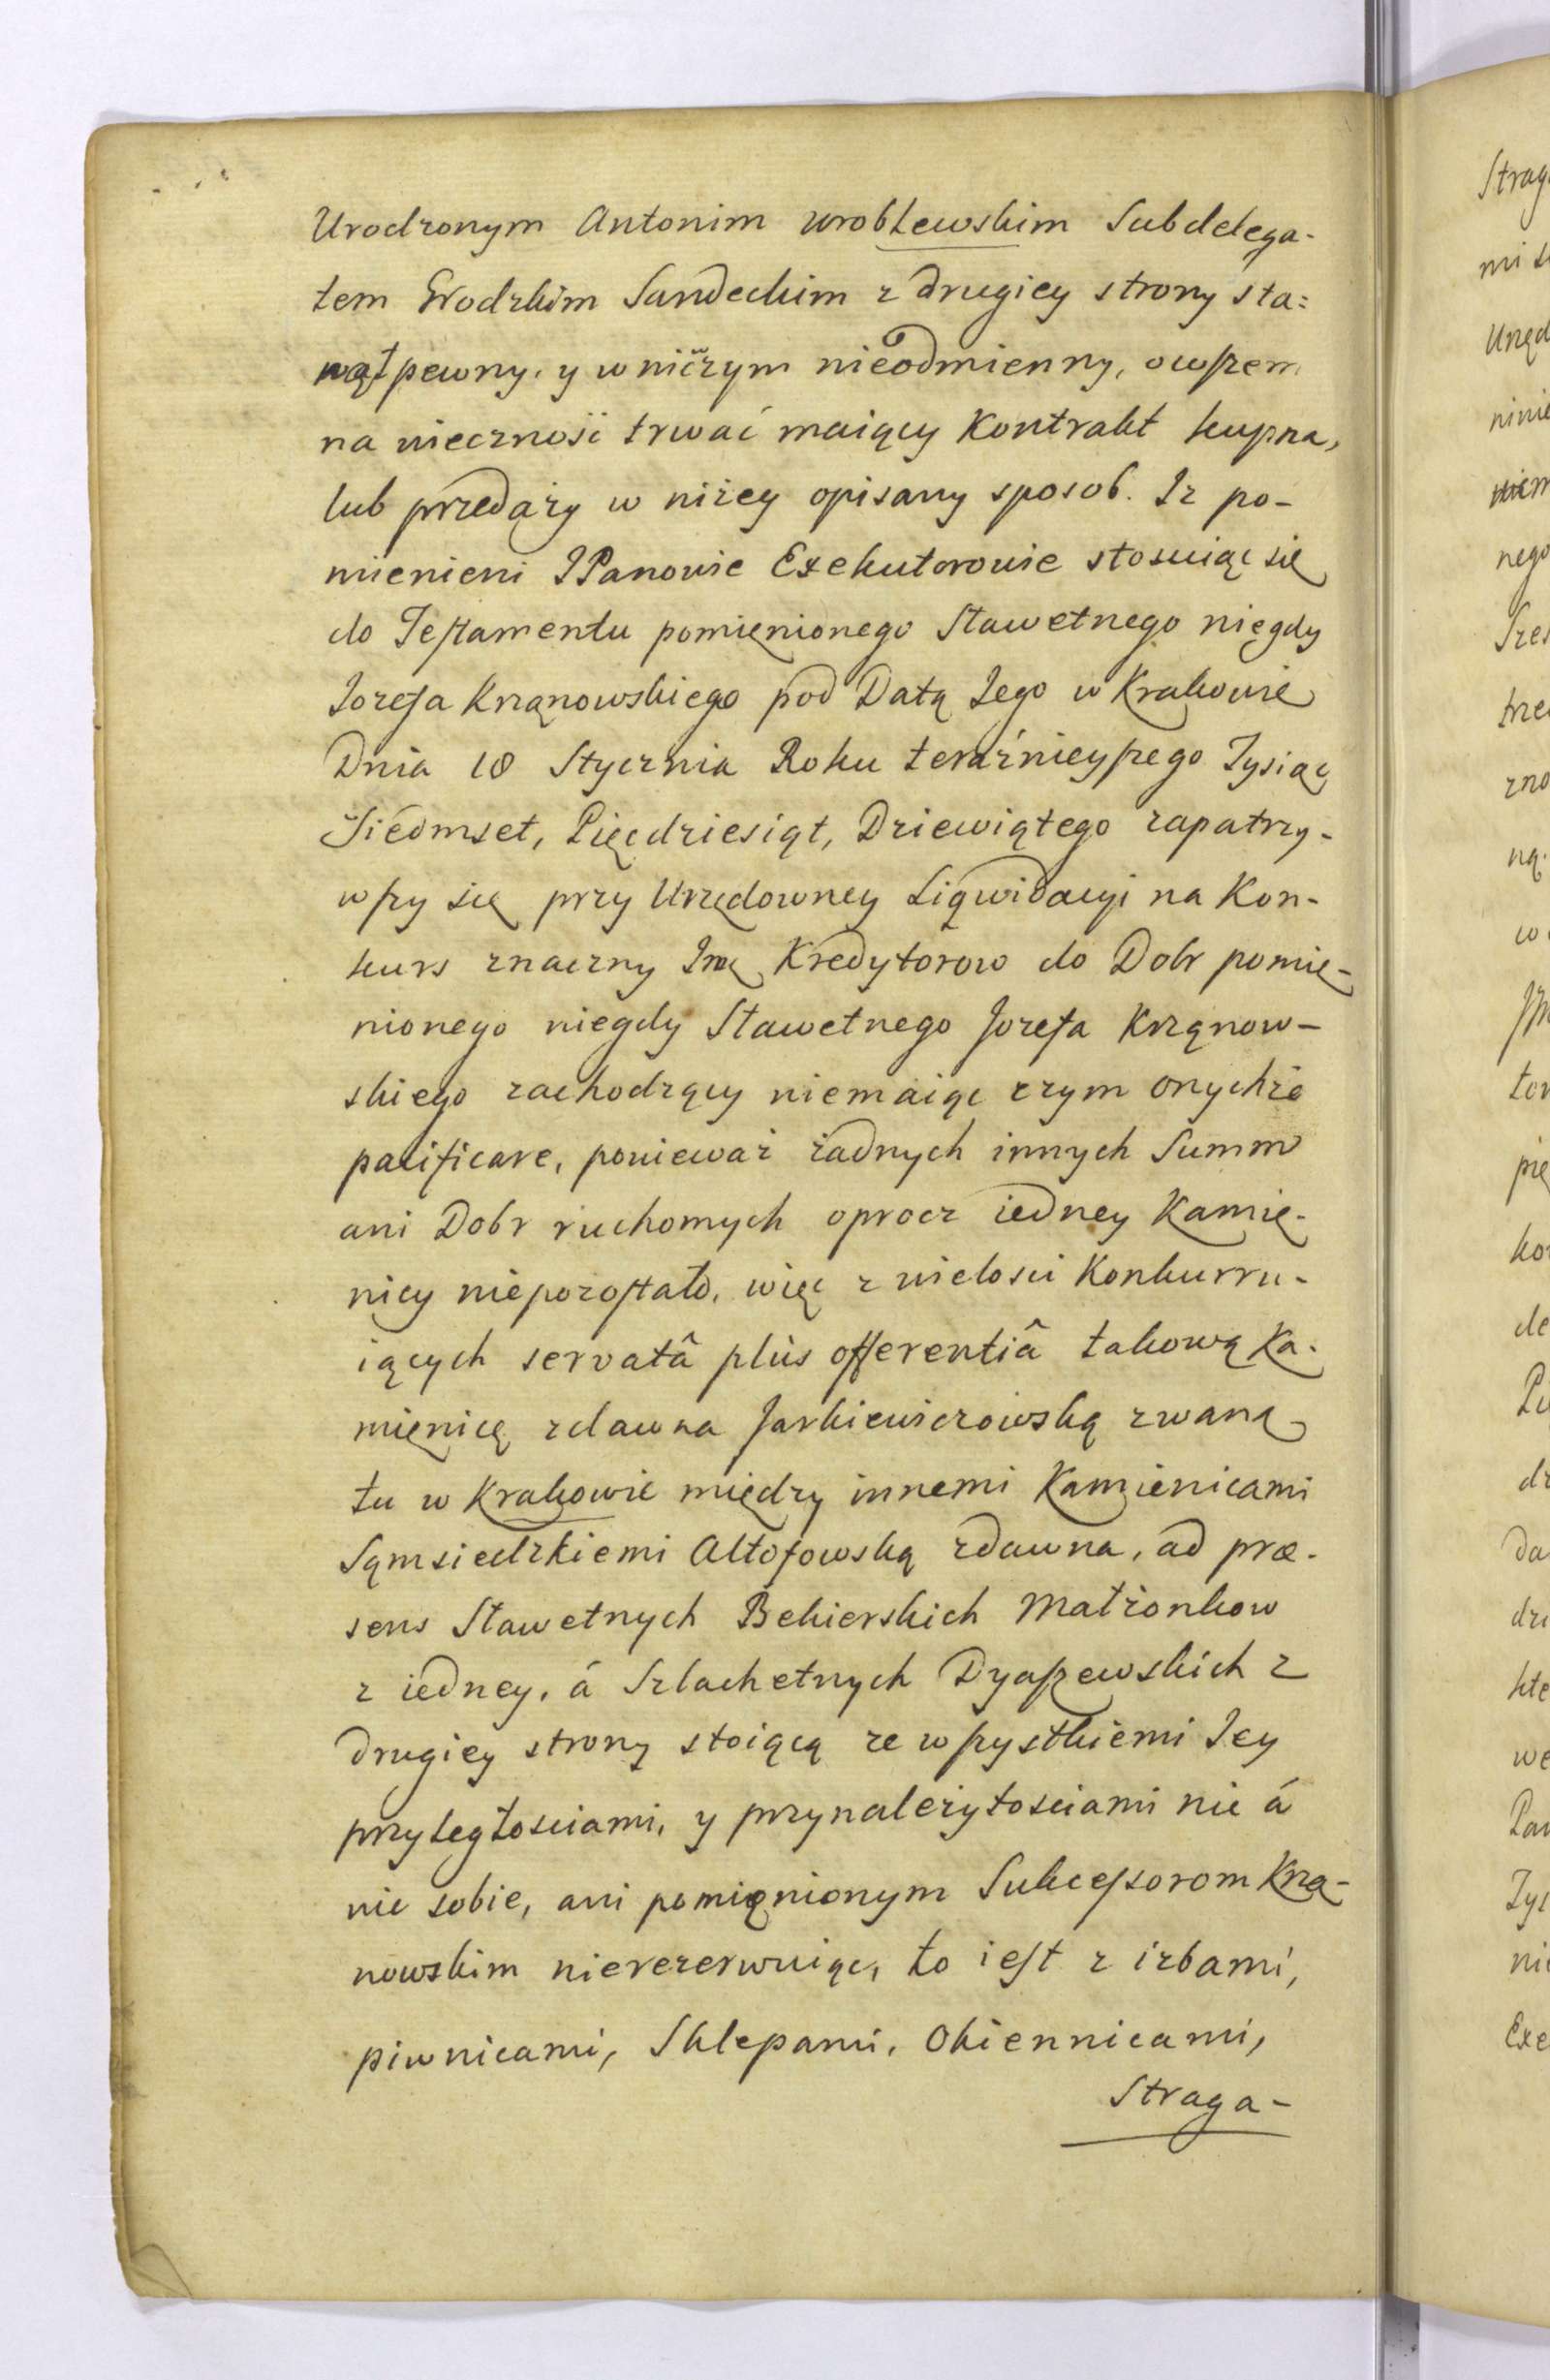 Urodzonym Antonim wrobłewskim Subdelega-
tem Grodzkim Sandeckim z drugiey strony sta=
nął pewny, y w niczym nieodmienny, owszem
na wieczność trwać maiący Kontrakt kupna,
lub przedaży w niżey opisany sposob. Iz po-
mienieni JPanowie Exekutorowie stosuiąc się
do Testamentu pomięnionego Sławetnego niegdy
Jozefa Krząnowskiego pod Datą Jego w Krakowie
Dnia 18 Stycznia Roku teraźnieyszego Tysiąc
Siedmset, Pięcdziesiąt, Dziewiątego zapatrzy-
wszy się przy Urzędowney Liqwidacyi na Kon-
kurs znaczny Kredytorow do Dobr pomię-
nionego niegdy Sławetnego Jozefa Krząnow-
skiego zachodzący niemaiąc czym onychże
pacificare, ponieważ żadnych innych Summ
ani Dobr ruchomych oprocz iedney Kamię-
nicy niepozostało, więc z wielosci Konkurru-
iących servatâ plùs offerentiâ takową Ka-
mięnicę zdawna Jarkiewiczowską zwaną
tu w Krakowie między innemi Kamienicami
Sąmsiedzkiemi Altofowską zdawna, ad præ-
sens Sławetnych Bekierskich Małżonkow
z iedney, á Szlachetnych Dyaszewskich z
drugiey strony stoiącą ze wszystkiemi Jey
przyległosciami, y przynależytosciami nic á
nic sobie, ani pomięnionym Sukcessorom Krzą-
nowskim nierezerwuiąc, to iest z izbami,
piwnicami, Sklepami, Okiennicami,
Straga-